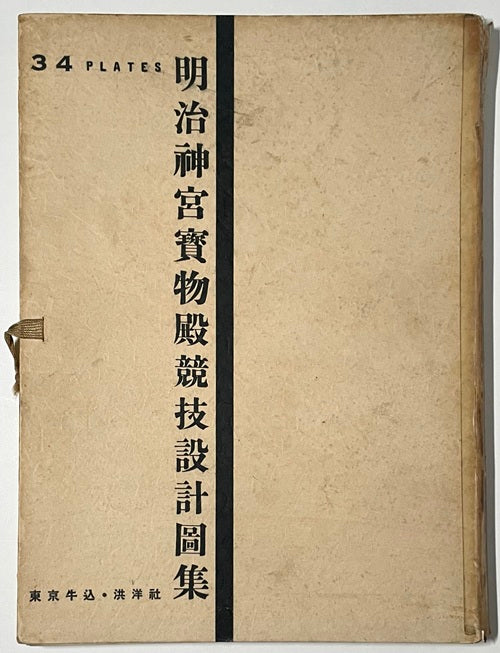 34 PLATES
明治神宮寶物殿競技設計圖集
東京牛込・洪洋社